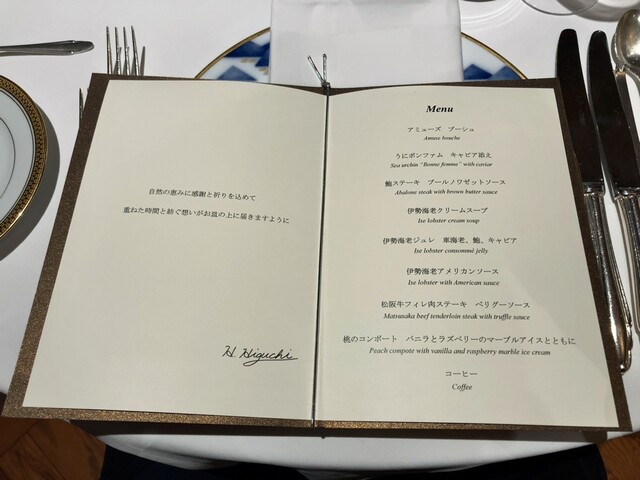 自然の恵みに感謝と祈りを込めて
重ねた時間と紡ぐ想いがお皿の上に届きますように
H. Higuchi
Menu
アミューズ ブーシュ
Amuse bouche
うにボンファム キャビア添え
Sea urchin "Bonne femme" with caviar
鮑ステーキ ブールノワゼットソース
Abalone steak with brown butter sauce
伊勢海老クリームスープ
Ise lobster cream soup
伊勢海老ジュレ 車海老、鮑、キャビア
Ise lobster consommé jelly
伊勢海老アメリカンソース
Ise lobster with American sauce
松阪牛フィレ肉ステーキ ペリグーソース
Matsusaka beef tenderloin steak with truffle sauce
桃のコンポート バニラとラズベリーのマーブルアイスとともに
Peach compote with vanilla and raspberry marble ice cream
コーヒー
Coffee